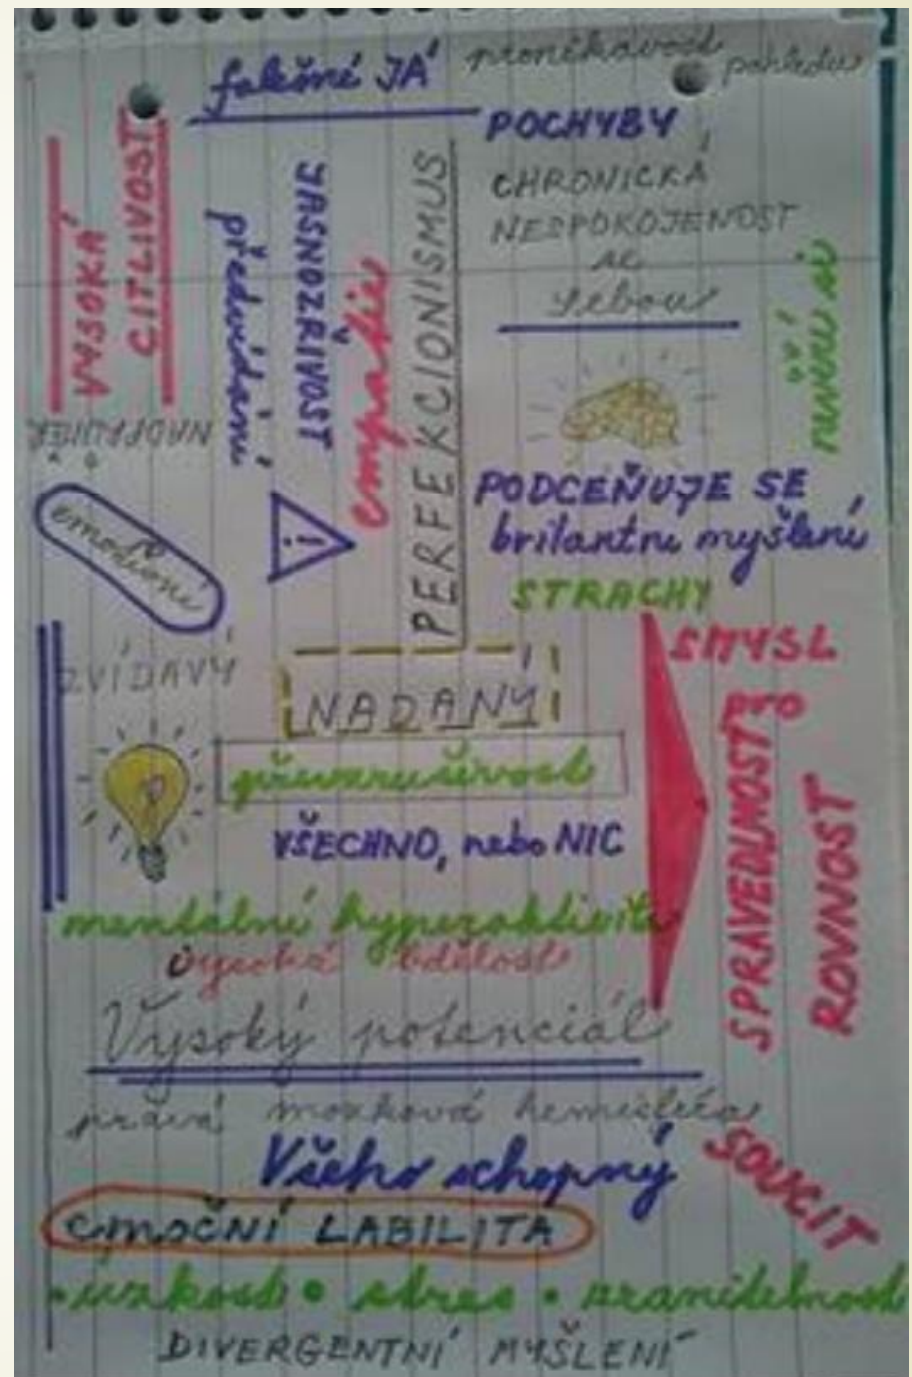 falešné JÁ
pronikavost pohledu
POCHYBY
CHRONICKÁ
NESPOKOJENOST
se
sebou
VYSOKÁ
CITLIVOST
předvídání
JASNOZŘIVOST
empatie
PERFEKCIONISMUS
nevěří si
NADPRŮMĚR
emoční
!
PODCEŇUJE SE
brilantní myšlení
STRACHY
SMYSL
pro
SPRAVEDLNOST
ROVNOST
ZVÍDAVÝ
NADANÝ
VŠECHNO, nebo NIC
mentální hyperaktivita
vysoká bdělost
Vysoký potenciál
pravá mozková hemisféra
Všeho schopný
SOUCIT
EMOČNÍ LABILITA
• úzkost • stres • zranitelnost
DIVERGENTNÍ MYŠLENÍ